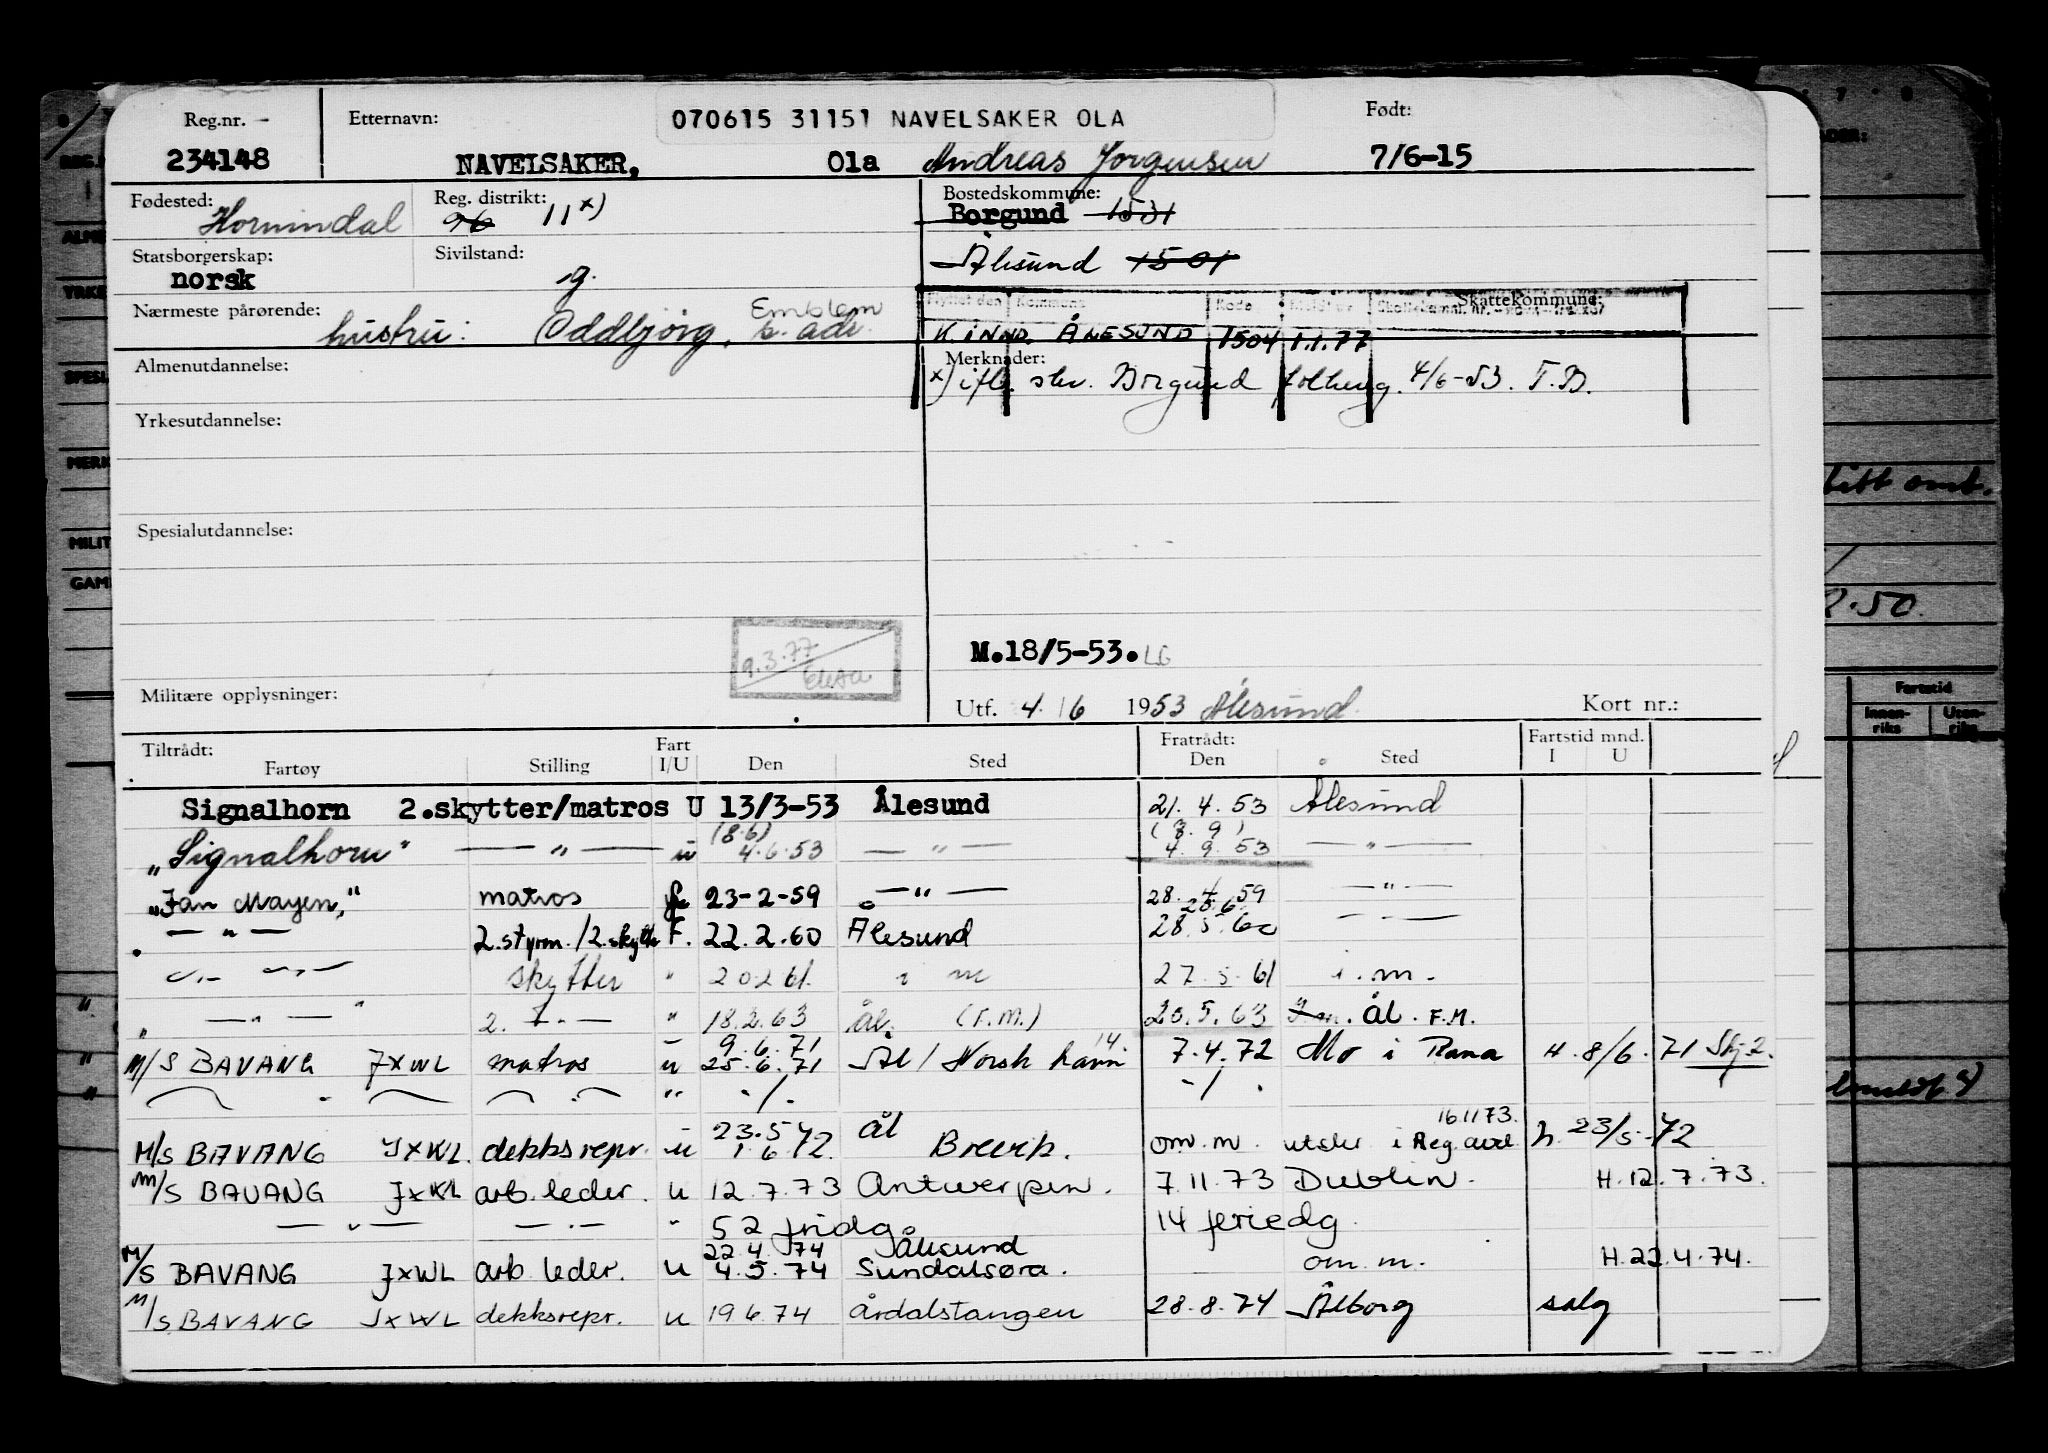 Reg.nr. Etternavn: 070615 31151 NAVELSAKER OLA Født:
234148 NAVELSAKER, Ola Andreas Jørgensen 7/6-15
Fødested: Hornindal Reg. distrikt: 96 11 x) Bostedskommune: Borgund 1531
Statsborgerskap: norsk Sivilstand: g. Ålesund 1501
Flyttet den Kommune Kode Skattekommune:
Nærmeste pårørende: hustru: Oddbjørg, s. adr. Emblem
K. INND. ÅLESUND 1504 1.1.77
Almenutdannelse: Merknader:
x) ifl. skr. Borgund folkereg. 4/6-53. T.B.
Yrkesutdannelse:
Spesialutdannelse:
9.3.77
M.18/5-53. LG
Militære opplysninger: Utf. 4/6 1953 Ålesund Kort nr.:
Tiltrådt: Fart Fratrådt: Fartstid mnd.
Fartøy Stilling I/U Den Sted Den Sted I U
Signalhorn 2.skytter/matros U 13/3-53 Ålesund 21.4.53 Ålesund
(8.6) (3.9)
"Signalhorn" — " — u 4.6.53 — " — 4.9.53 — " —
"Jan Mayen," matros 23-2-59 — " — 28.4.59 — " —
25.6
— " — 2.styrm./2.skytter F. 22.2.60 Ålesund 28.5.60 — " —
— " — skytter " 20.2.61. i m 27.5.61 i.m.
— " — 2. — " — " 18.2.63 Ål. (F.M.) 20.5.63 Ål. F.M.
9.6.71 14.
M/S BAVANG JXWL matros u 25.6.71 Ål / Norsk havn 7.4.72 Mo i Rana H. 8/6.71 Skj.2.
" -/. -/.
23.5.72 ål 161173.
M/S BAVANG JXWL. dekksrepr. u 1.6.72. Brevik. om.m. utskr. i Reg.avd. h. 23/5-72
M/S BAVANG JXWL arb.leder. u 12.7.73 Antwerpen. 7.11.73 Dublin. H.12.7.73.
— " — — " — " 52 fridg. 14 feriedg.
22.4.74 ålesund
M/S BAVANG JXWL arb leder. u 4.5.74 Sundalsøra. om.m. H.22.4.74.
M/S BAVANG JXWL dekksrepr. u 19 6.74 årdalstangen 28.8.74 Ålborg salg
titt omt.
2.50
Fartstid
Innen-riks Uten-riks